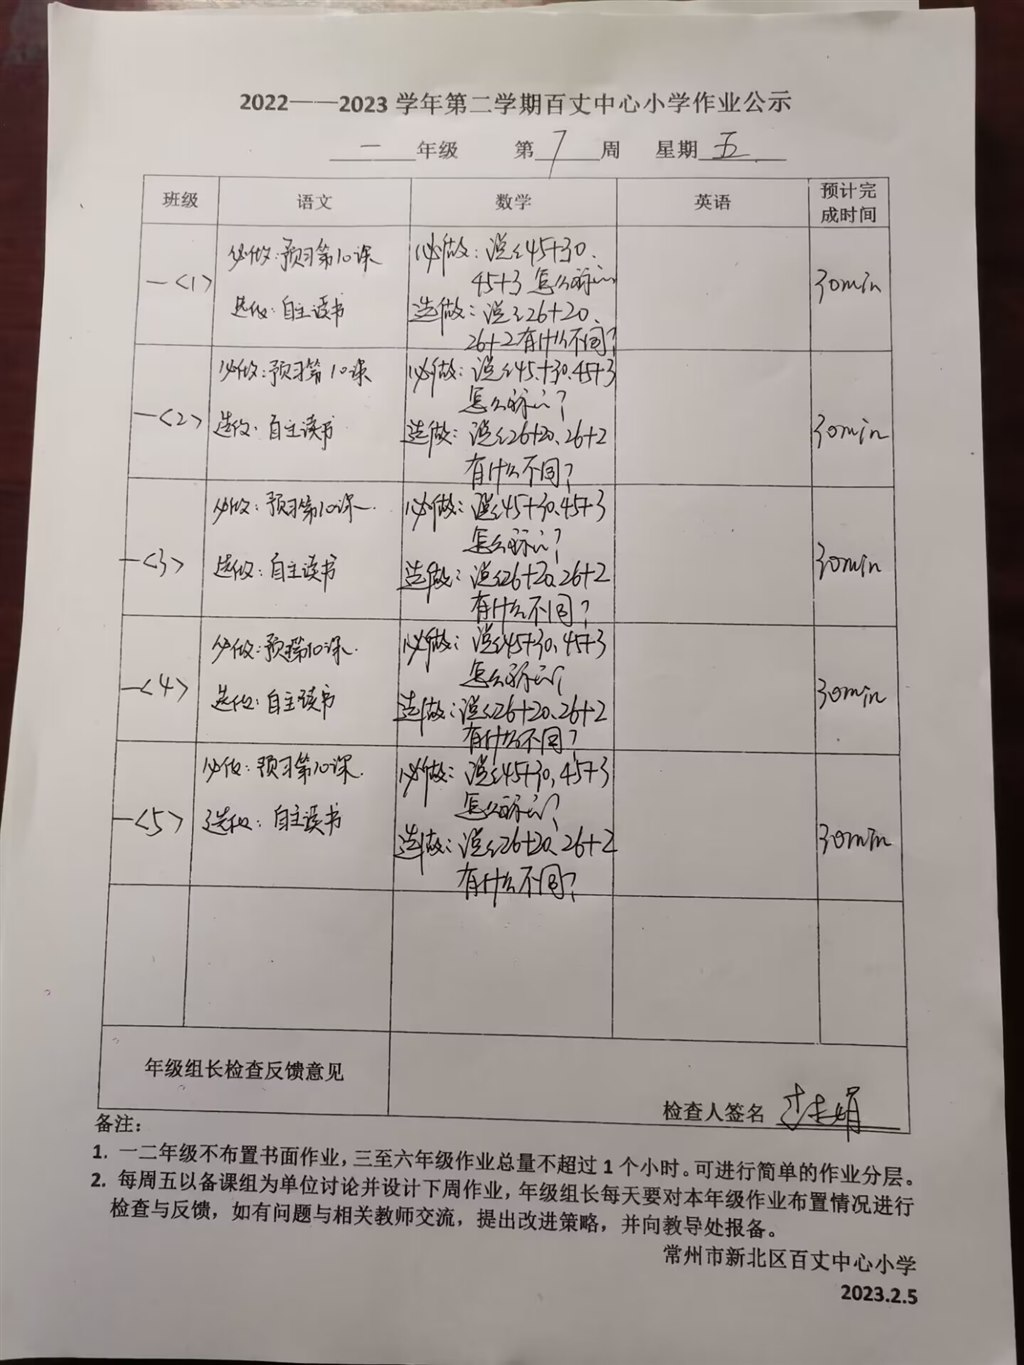 2022——2023 学年第二学期百丈中心小学作业公示
一 年级 第 7 周 星期 五
班级 语文 数学 英语 预计完
成时间
一<1> 必做：预习第10课 必做：说说45+30、 30min
45+3 怎么算的
选做：自主读书 选做：说说26+20、
26+2有什么不同？
一<2> 必做：预习第10课 必做：说说45+30、45+3 30min
怎么算的？
选做：自主读书 选做：说说26+20、26+2
有什么不同？
一<3> 必做：预习第10课 必做：说说45+30、45+3 30min
怎么算的？
选做：自主读书 选做：说说26+20、26+2
有什么不同？
一<4> 必做：预习第10课 必做：说说45+30、45+3 30min
怎么算的？
选做：自主读书 选做：说说26+20、26+2
有什么不同？
一<5> 必做：预习第10课 必做：说说45+30，45+3 30min
怎么算的？
选做：自主读书 选做：说说26+20、26+2
有什么不同？
年级组长检查反馈意见
检查人签名
备注：
1. 一二年级不布置书面作业，三至六年级作业总量不超过 1 个小时。可进行简单的作业分层。
2. 每周五以备课组为单位讨论并设计下周作业，年级组长每天要对本年级作业布置情况进行
检查与反馈，如有问题与相关教师交流，提出改进策略，并向教导处报备。
常州市新北区百丈中心小学
2023.2.5